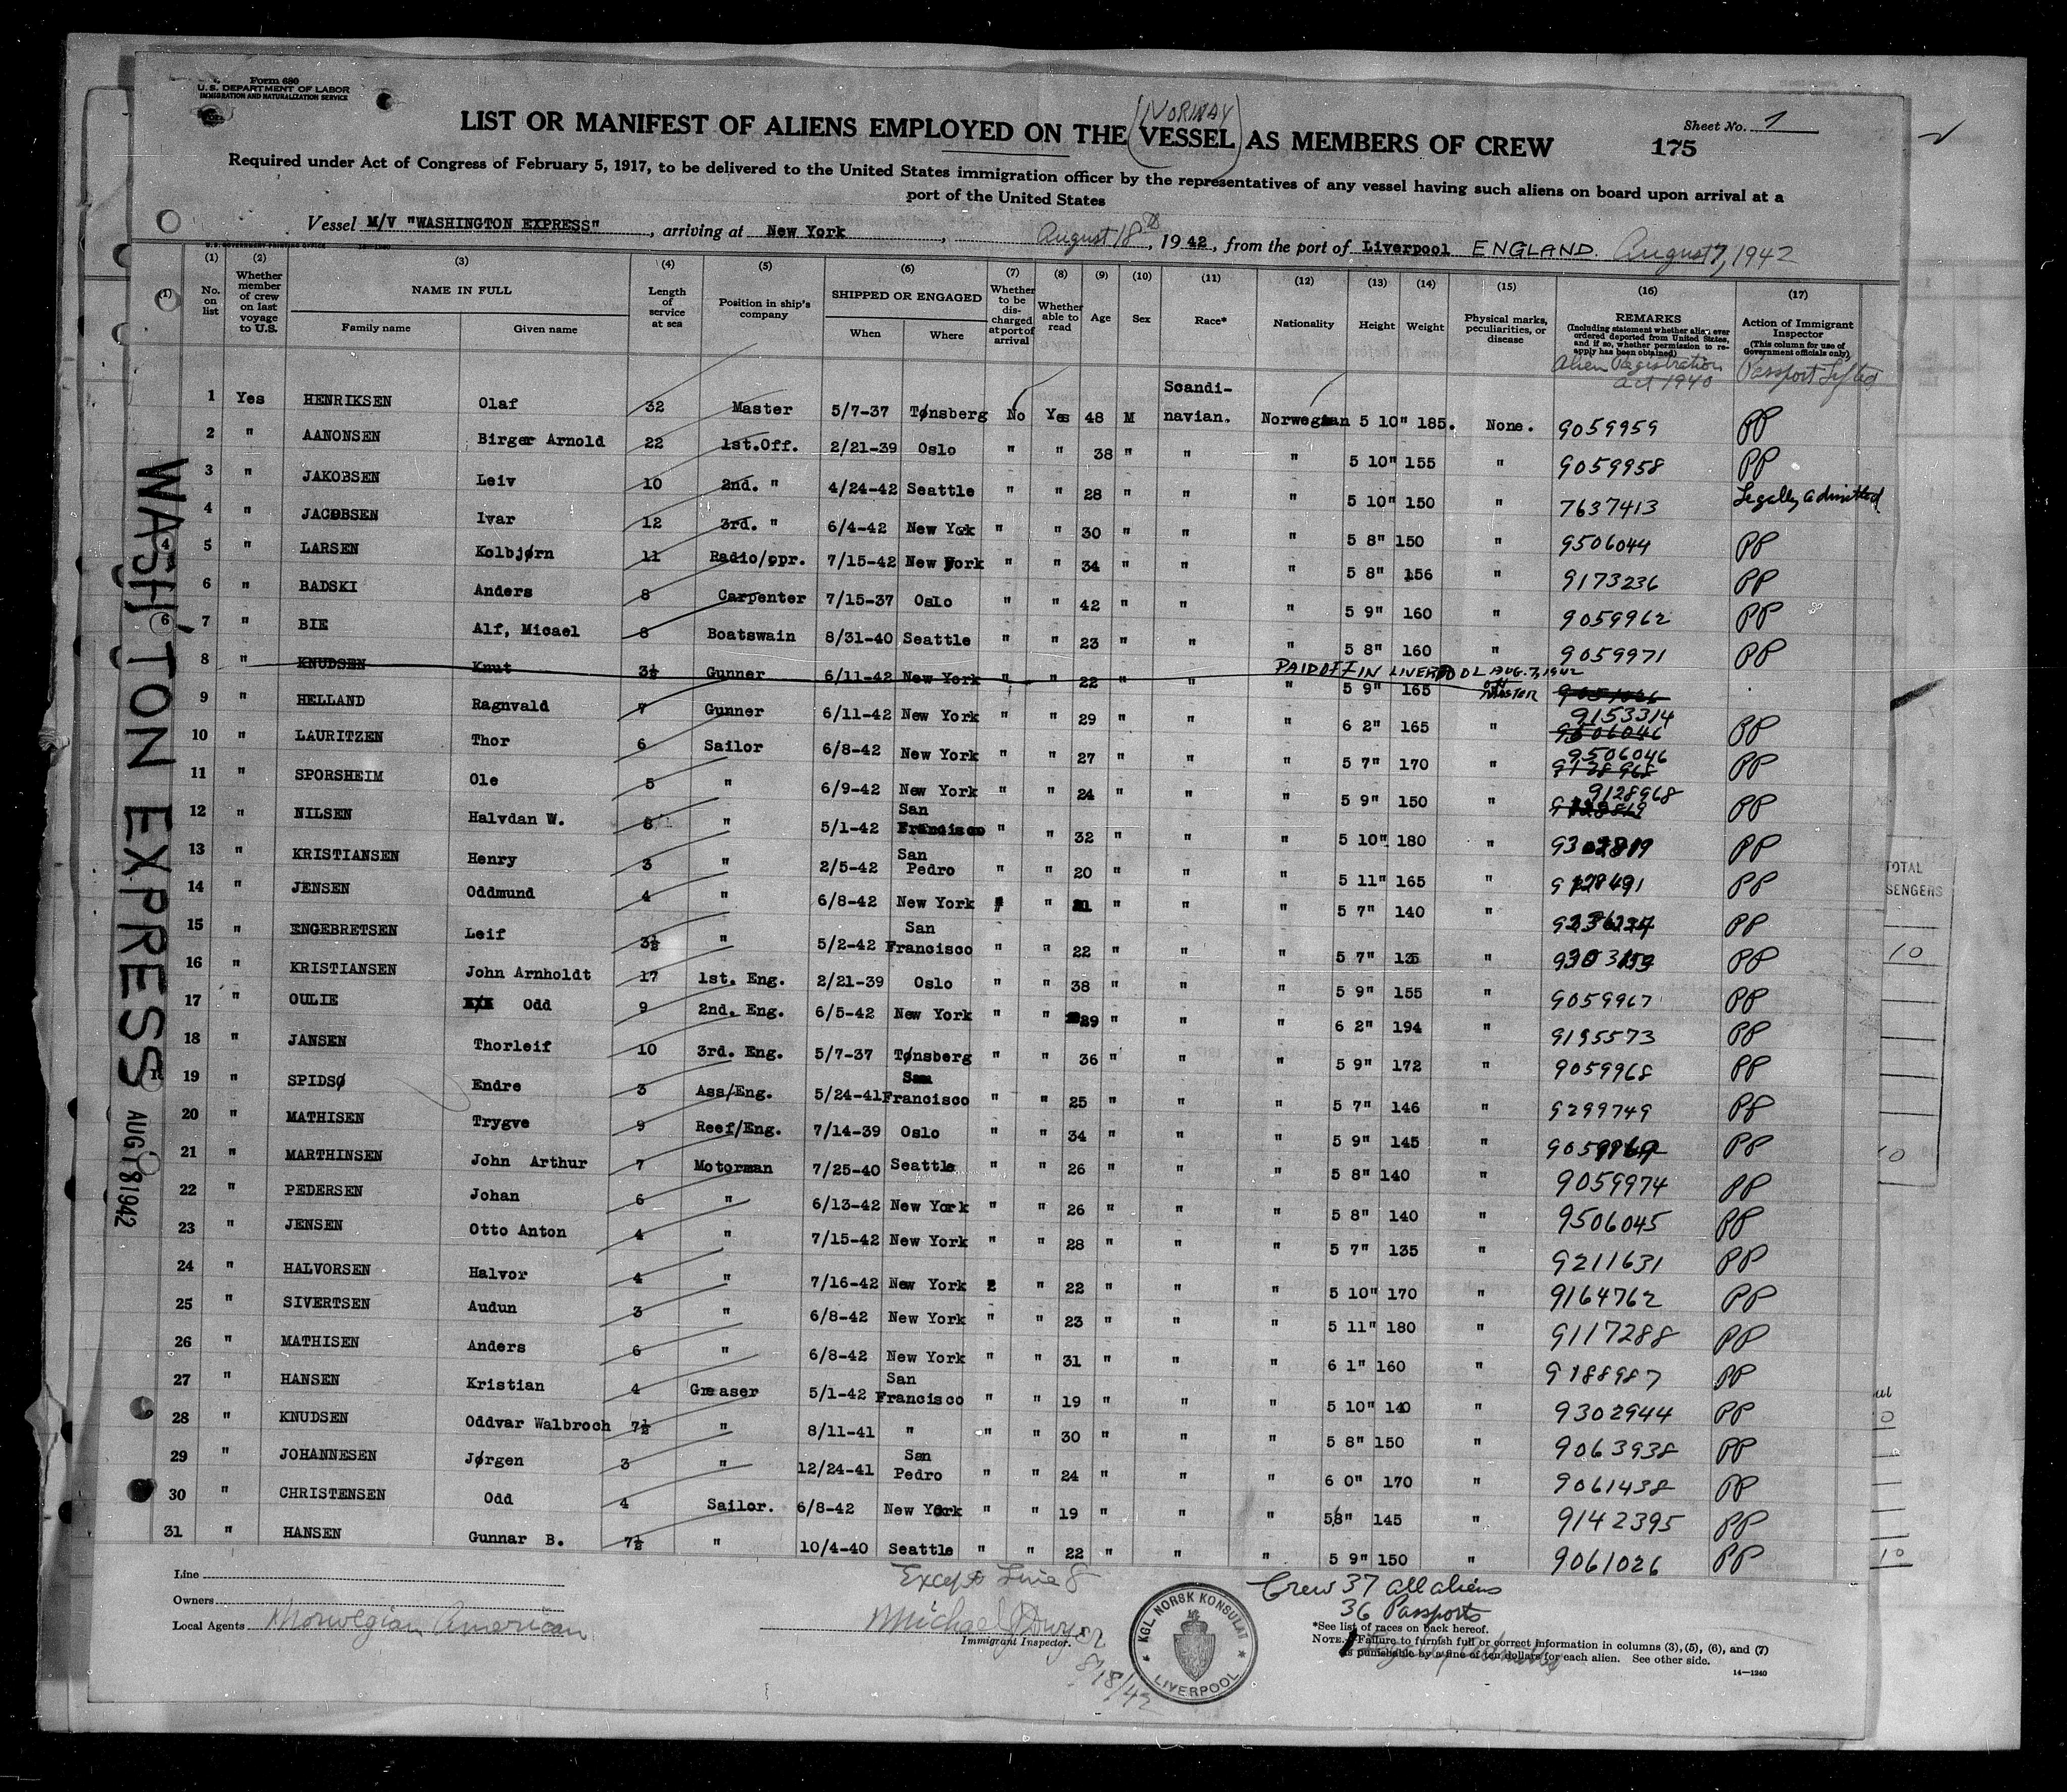 Form 680
U.S. DEPARTMENT OF LABOR
IMMIGRATION AND NATURALIZATION SERVICE
(NORWAY)
Sheet No. 1
LIST OR MANIFEST OF ALIENS EMPLOYED ON THE VESSEL AS MEMBERS OF CREW 175
Required under Act of Congress of February 5, 1917, to be delivered to the United States immigration officer by the representatives of any vessel having such aliens on board upon arrival at a
port of the United States
Vessel M/V "WASHINGTON EXPRESS", arriving at New York, August 18th, 1942, from the port of Liverpool ENGLAND. August 7, 1942
U.S. GOVERNMENT PRINTING OFFICE 14-1240
(1) No. on list
(2) Whether member of crew on last voyage to U.S.
(3) NAME IN FULL Family name Given name
(4) Length of service at sea
(5) Position in ship's company
(6) SHIPPED OR ENGAGED When Where
(7) Whether to be discharged at port of arrival
(8) Whether able to read
(9) Age
(10) Sex
(11) Race*
(12) Nationality
(13) Height
(14) Weight
(15) Physical marks, peculiarities, or disease
(16) REMARKS (Including statement whether alien ever ordered deported from United States, and if so, whether permission to reapply has been obtained) Alien Registration act 1940
(17) Action of Immigrant Inspector (This column for use of Government officials only) Passport Lifted
1 Yes HENRIKSEN Olaf 32 Master 5/7-37 Tønsberg No Yes 48 M Scandinavian. Norwegian 5 10" 185. None. 9059959 PP
2 " AANONSEN Birger Arnold 22 1st.Off. 2/21-39 Oslo " " 38 " " " 5 10" 155 " 9059958 PP
3 " JAKOBSEN Leiv 10 2nd. " 4/24-42 Seattle " " 28 " " " 5 10" 150 " 7637413 Legally admitted
4 " JACOBSEN Ivar 12 3rd. " 6/4-42 New Yok " " 30 " " " 5 8" 150 9506044 PP
5 " LARSEN Kolbjørn 11 Radio/opr. 7/15-42 New York " " 34 " " " 5 8" 156 " 9173236 PP
6 " BADSKI Anders 8 Carpenter 7/15-37 Oslo " " 42 " " " 5 9" 160 " 9059962 PP
7 " BIE Alf, Micael 8 Boatswain 8/31-40 Seattle " " 23 " " " 5 8" 160 " 9059971 PP
8 " KNUDSEN Knut 3½ Gunner 6/11-42 New York " " 22 " " " 5 9" 165
PAID OFF IN LIVERPOOL AUG. 7, 1942
MASTER
9 " HELLAND Ragnvald 7 Gunner 6/11-42 New York " " 29 " " " 6 2" 165 " 9153314 9506046 PP
10 " LAURITZEN Thor 6 Sailor 6/8-42 New York " " 27 " " " 5 7" 170 " 9506046 9128968 PP
11 " SPORSHEIM Ole 5 " 6/9-42 New York " " 24 " " " 5 9" 150 " 9128968 PP
12 " NILSEN Halvdan W. 8 " 5/1-42 San Francisco " " 32 " " " 5 10" 180 " PP
13 " KRISTIANSEN Henry 3 " 2/5-42 San Pedro " " 20 " " " 5 11" 165 " PP
14 " JENSEN Oddmund 4 " 6/8-42 New York " " 21 " " " 5 7" 140 " PP
15 " ENGEBRETSEN Leif 3½ " 5/2-42 San Francisco " " 22 " " " 5 7" 135 " PP
16 " KRISTIANSEN John Arnholdt 17 1st. Eng. 2/21-39 Oslo " " 38 " " " 5 9" 155 " 9059967 PP
17 " OULIE Odd 9 2nd. Eng. 6/5-42 New York " " 29 " " " 6 2" 194 " 9195573 PP
18 " JANSEN Thorleif 10 3rd. Eng. 5/7-37 Tønsberg " " 36 " " " 5 9" 172 " 9059968 PP
19 " SPIDSØ Endre 3 Ass/Eng. 5/24-41 San Francisco " " 25 " " " 5 7" 146 " 9299749 PP
20 " MATHISEN Trygve 9 Reef/Eng. 7/14-39 Oslo " " 34 " " " 5 9" 145 " 9059969 PP
21 " MARTHINSEN John Arthur 7 Motorman 7/25-40 Seattle " " 26 " " " 5 8" 140 " 9059974 PP
22 " PEDERSEN Johan 6 " 6/13-42 New York " " 26 " " " 5 8" 140 " 9506045 PP
23 " JENSEN Otto Anton 4 " 7/15-42 New York " " 28 " " " 5 7" 135 " 9211631 PP
24 " HALVORSEN Halvor 4 " 7/16-42 New York " " 22 " " " 5 10" 170 " 9164762 PP
25 " SIVERTSEN Audun 3 " 6/8-42 New York " " 23 " " " 5 11" 180 " 9117288 PP
26 " MATHISEN Anders 6 " 6/8-42 New York " " 31 " " " 6 1" 160 " 9188987 PP
27 " HANSEN Kristian 4 Greaser 5/1-42 San Francisco " " 19 " " " 5 10" 140 " 9302944 PP
28 " KNUDSEN Oddvar Walbroch 7½ " 8/11-41 " " " 30 " " " 5 8" 150 " 9063938 PP
29 " JOHANNESEN Jørgen 3 " 12/24-41 San Pedro " " 24 " " " 6 0" 170 " 9061438 PP
30 " CHRISTENSEN Odd 4 Sailor. 6/8-42 New York " " 19 " " " 5 8" 145 " 9142395 PP
31 " HANSEN Gunnar B. 7½ " 10/4-40 Seattle " " 22 " " " 5 9" 150 " 9061026 PP
WASHINGTON EXPRESS AUG 18 1942
TOTAL
SENGERS
10
10
Line
Owners
Local Agents Norwegian American
Except Line 8
Michael J Dwyer
Immigrant Inspector.
8/18/42
KGL. NORSK KONSULAT
LIVERPOOL
Crew 37 all aliens
36 Passports
1 Legally admitted
*See list of races on back hereof.
NOTE.—Failure to furnish full or correct information in columns (3), (5), (6), and (7)
is punishable by a fine of ten dollars for each alien. See other side.
14—1240